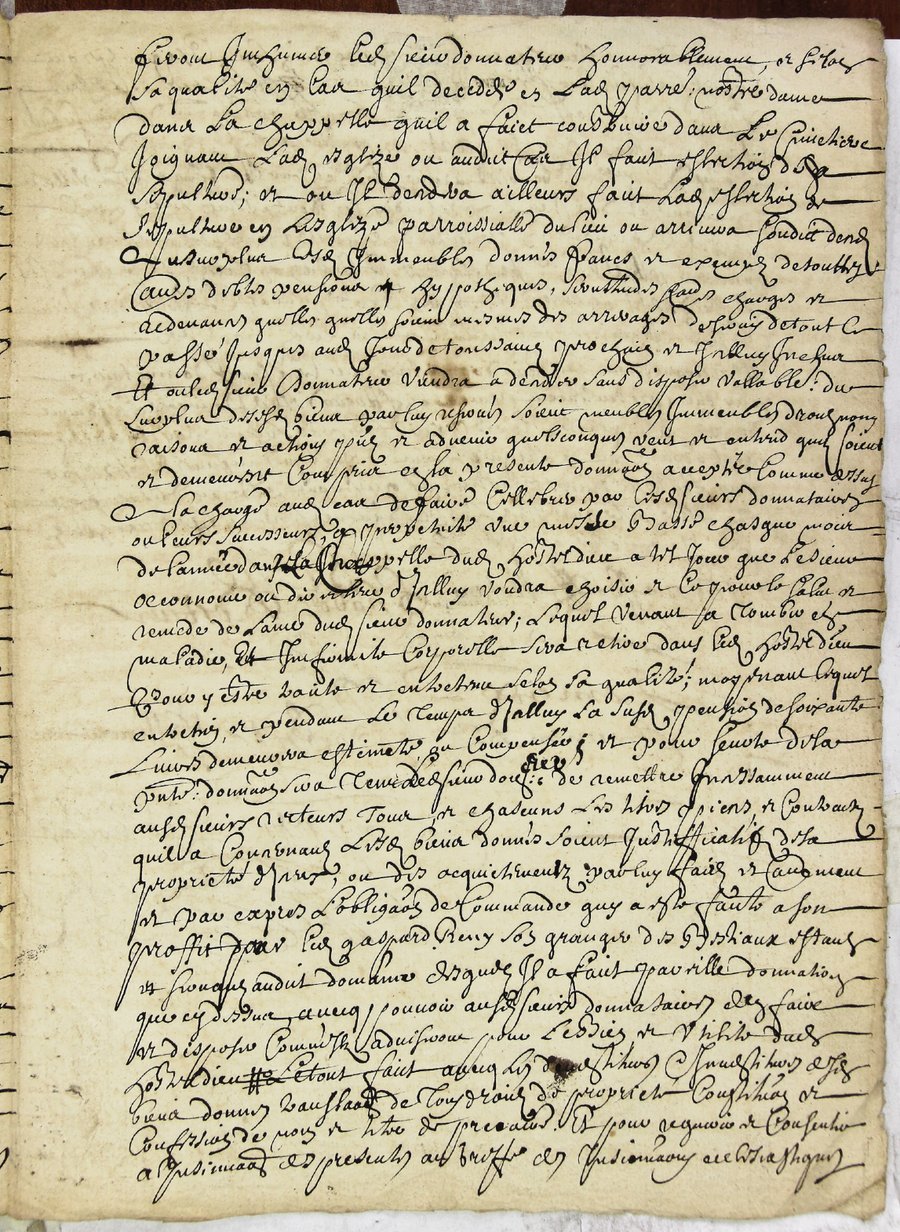 feront Inhumer led sieur donnateur honnorablement, et selon
sa qualité en cas quil decedde en lad parre: nostre dame
dans La chappelle quil a faict construire dans Le Cimetiere
Joignant Lad esglize ou audit Cas Jl faict eslection de sa
sepulture; et ou Jl dendra ailleurs faict Lad eslection de
sepulture en Lesglize parroissialle du lieu ou arrivera sondict deced
lesd Immeubles donnés francs et exempts de touttes
Causes debtes pensions et hypotheques, servitudes charges et
redevances quelles quelles soient mesmes des arrerages desquels de tout le
passé Jusques aud Jour de toussainct prochain et Jcelluy Jnclus
Et ou led sieur Donnateur viendra a deceder sans disposer vallable: du
surplus desd biens par luy reservés soient meubles Immeubles droicts noms
raisons et actions pnts et advenir quelsconques veut et entend quils soient
et demeurent Compris en la presente donnaon acceptée Comme dessus
a la charge aud cas de faire Cellebrer par lesd sieurs donnataires
ou leurs successeurs, a perpetuité une messe basse chasque mois
de lannée dans la Chappelle dud hostel dieu a tel Jour que le sieur
oeconnome ou directeur dJcelluy voudra choisir et ce pour le salut et
remede de lame dud sieur donnateur; Lequel venant a Tomber en
maladie, Et Infirmité Corporelle sera retiré dans led hostel dieu
Pour y estre traité et entretenu selon sa qualité; moyenant lequel
entretien, et pendant Le Temps dJcelluy La susd pension de soixante
Livres demeurera estimée, ou Compensée; et pour seureté de la
pnte: donnaon sera Tenu led sieur don: de remettre Incessamment
ausd sieurs recteurs Tous, et chascuns Les titres papiers, et Contracts
quil a Concernant Lesd biens donnés soient Justifficatifs de la
proprieté dJceux, ou des acquitements par luy faicts et Candment
et par expres Lobligaon de Commande quy a esté faicte a son
proffit par led gaspard Remy son granger des bestiaux estants
et servants audit domaine desquels Jl a faict pareille donnation
que cydessus, avecq pouvoir ausd sieurs donnataires den faire
et disposer Comm'Jls adviseront pour Le bien et utilité dud
hostel dieu Letout faict avecq les devestitures Jnvestitures desd
biens donnés translaon de Tous droicts de proprieté Constituon et
Confession de nom et titre de precaire: Et pour requerir et Consentir
a Jnsinuaon des presentes au Greffe des Jnsinuaons ecclesiastiques